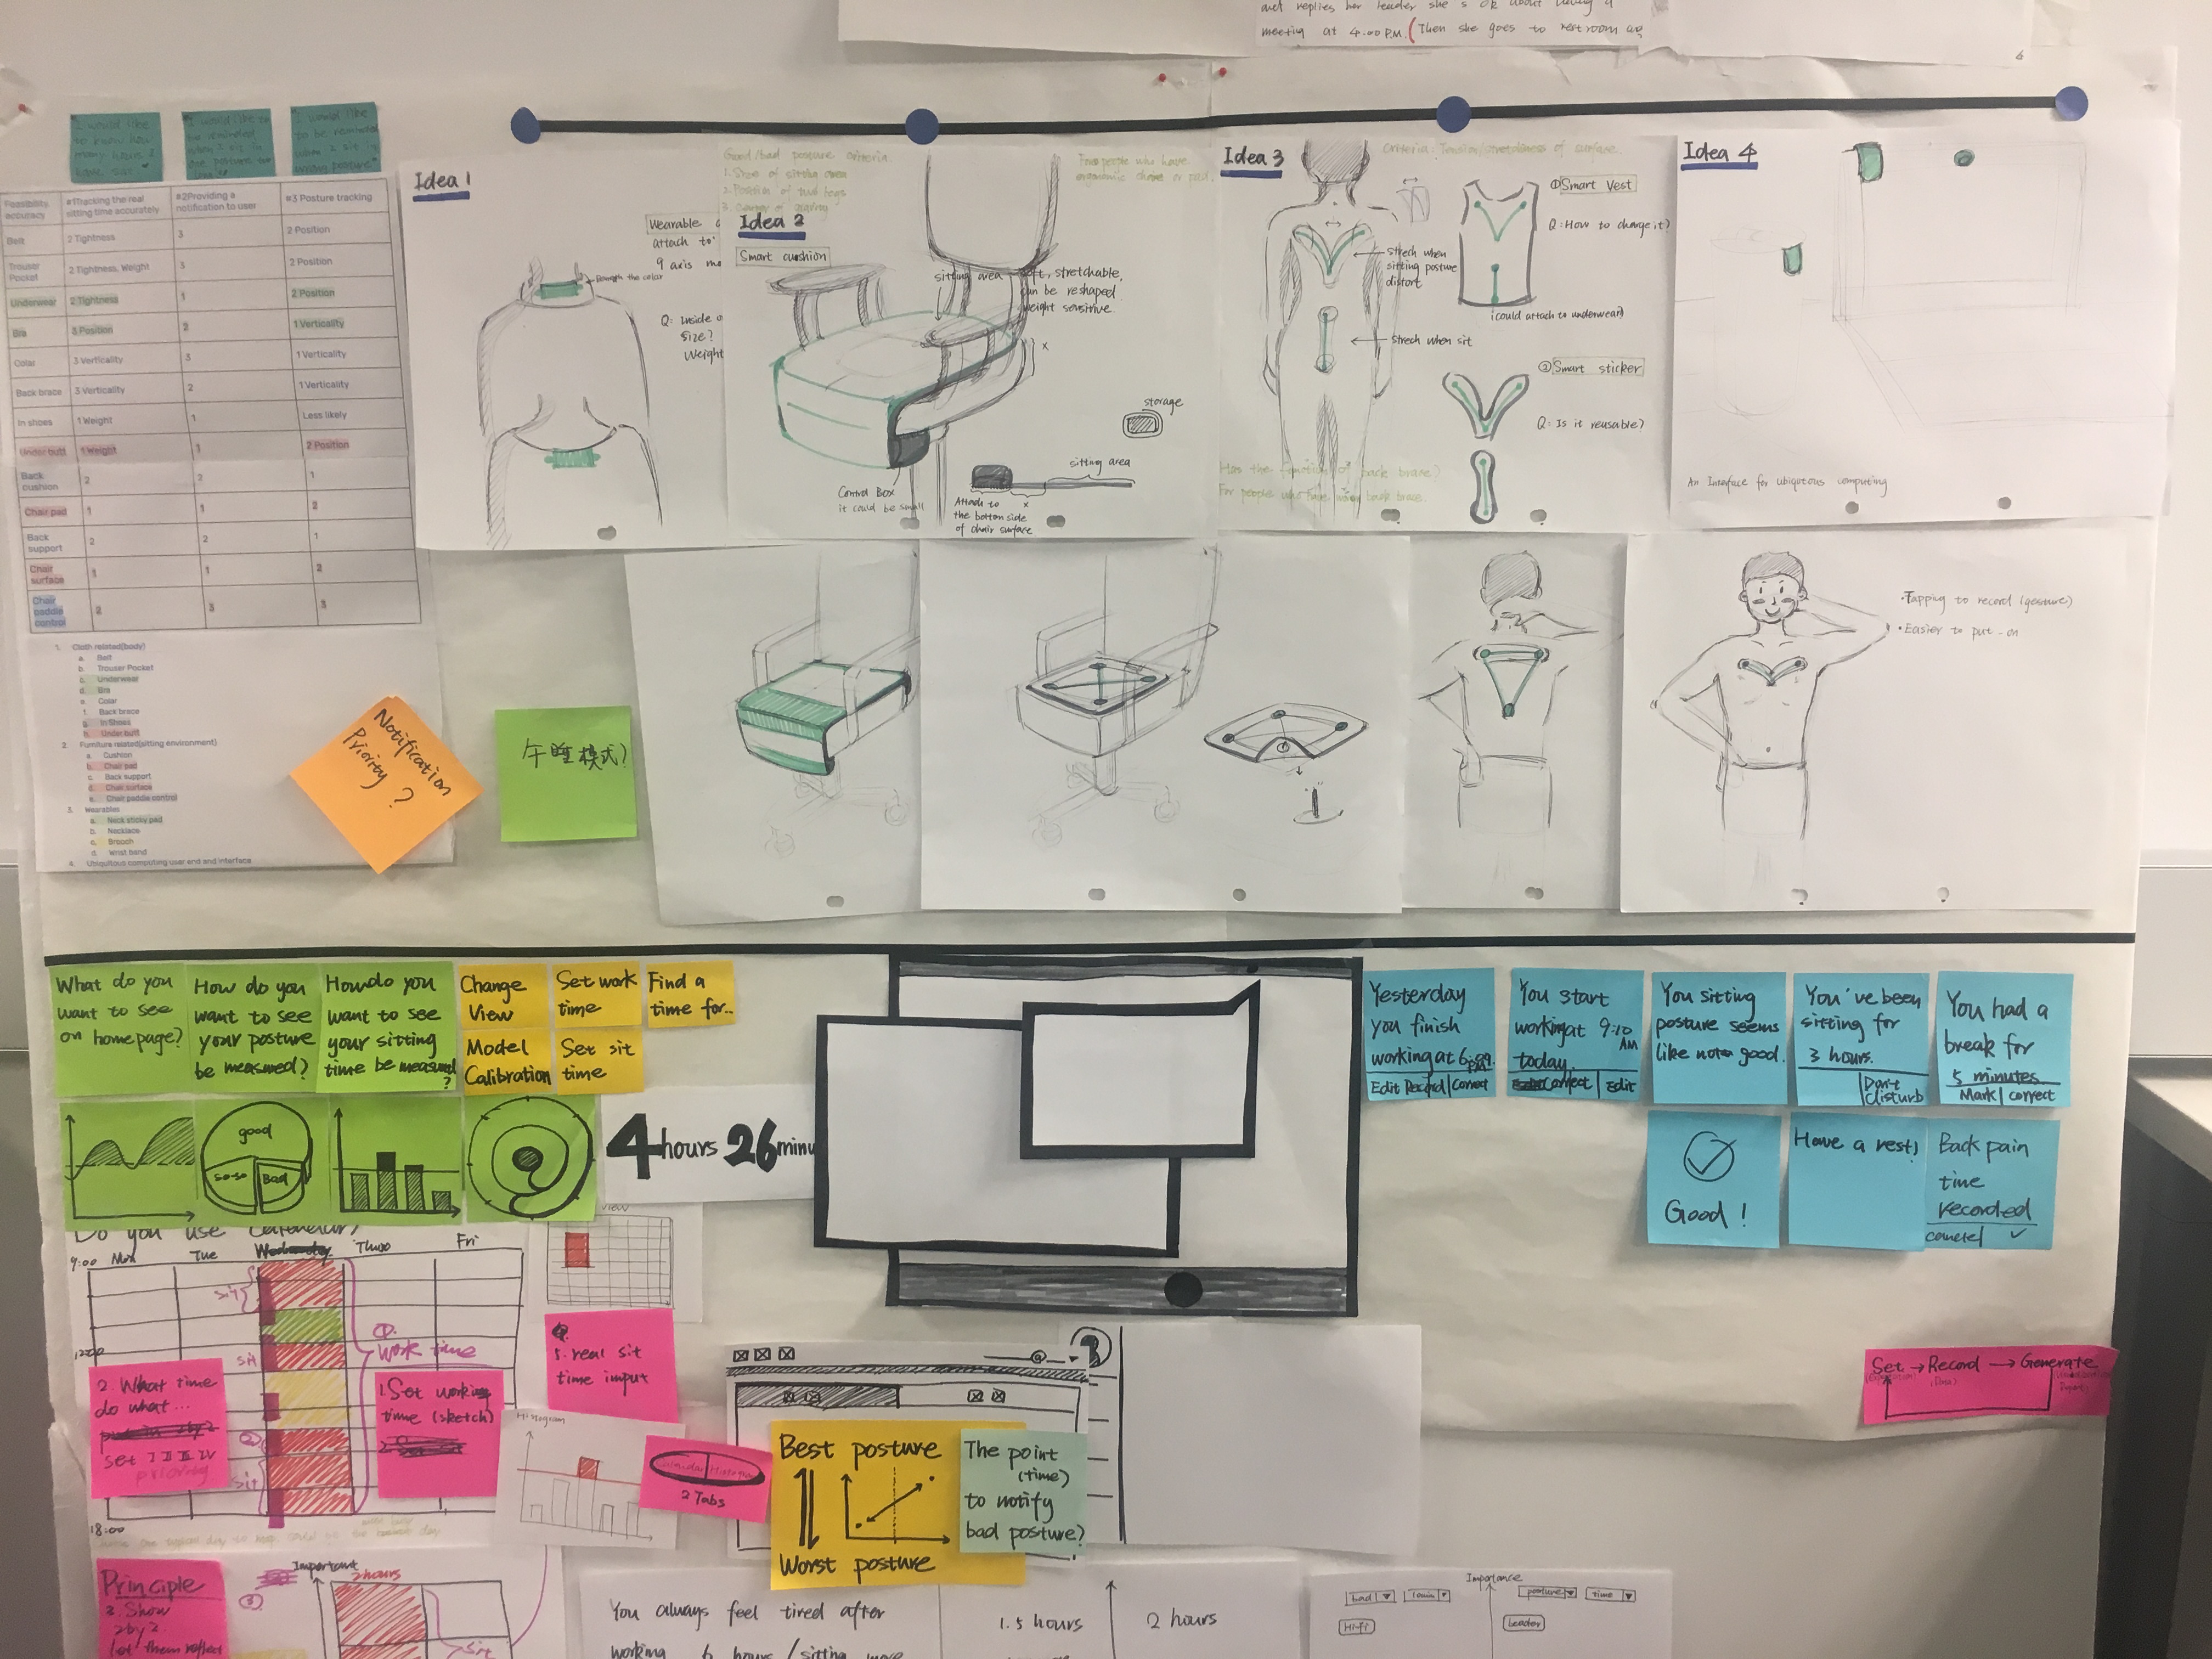 meeting at 4.00 P.M. (Then she goes to restroom
I would like
to know how
many hours I
have sat"
I would like
to be reminded
when I sit in
wrong posture"
Feasibility,
accuracy
#1Tracking the real
sitting time accurately
#2Providing a
notification to user
#3 Posture tracking
Belt
2 Tightness
3
2 Position
Trouser
Pocket
2 Tightness, Weight
3
2 Position
Underwear
2 Tightness
1
2 Position
Bra
3 Position
2
1 Verticality
Colar
3 Verticality
3
1 Verticality
Back brace
3 Verticality
2
1 Verticality
In shoes
1 Weight
1
Less likely
Under butt
1 Weight
1
2 Position
Back
cushion
2
2
1
Chair pad
1
1
2
Back
support
2
2
1
Chair
surface
1
1
2
Chair
paddle
control
2
3
3
1. Cloth related(body)
a. Belt
b. Trouser Pocket
c. Underwear
d. Bra
e. Colar
f. Back brace
g. In Shoes
h. Under butt
2. Furniture related(sitting environment)
a. Cushion
b. Chair pad
c. Back support
d. Chair surface
e. Chair paddle control
3. Wearables
a. Neck sticky pad
b. Necklace
c. Brooch
d. Wrist band
4. Ubiquitous computing user end and interface
Idea 1
Wearable
attach to
9 axis
Q: Inside
size?
Weight
Good/bad posture criteria.
1. Size of sitting area
2. Position of two legs
Idea 2
Smart cushion
sitting area
soft, stretchable,
can be reshaped
weight sensitive.
x
storage
Control Box
it could be small
sitting area
Attach to
the bottom side
of chair surface
x
Idea 3
Criteria: Tension/stretchiness of surface.
① Smart Vest
Q: How to charge it?
Strech when
sitting posture
distort
(could attach to underwear)
Strech when sit
② Smart sticker
Q: Is it reusable?
Has the function of back brace?
Idea 4
An Interface for ubiqutous computing
• Tapping to record (gesture)
• Easier to put-on
Notification
Priority?
午睡模式?
What do you
want to see
on homepage?
How do you
want to see
your posture
be measured?
How do you
want to see
your sitting
time be measured
?
Change
View
Set work
time
Find a
time for..
Model
Calibration
Set sit
time
good
so-so
Bad
4 hours 26 minu
Yesterday
you finish
working at
PM
Edit Record | Correct
You start
working at 9:10
AM
today.
Correct | Edit
You sitting
posture seems
like not good.
You've been
sitting for
3 hours.
Don't
disturb
You had a
break for
5 minutes
Mark | correct
Good!
Have a rest!
Back pain
time
recorded
cancel ✓
Set → Record → Generate
Do you use calendar?
9:00 Mon Tue Wednesday Thus Fri
12:00
18:00
sit
sit
sit
①
work time
②
2. What time
do what...
set I II III IV
priority
1. Set working
time (sketch)
view
5. real sit
time input
Histogram
2 Tabs
Best posture
Worst posture
The point
(time)
to notify
bad posture?
Principle
3. Show
2 by 2
let them reflect
③
Important
2 hours
sit
You always feel tired after
working 6 hours / sitting
1.5 hours
2 hours
Importance
bad
posture
time
Hi-Fi
Leader